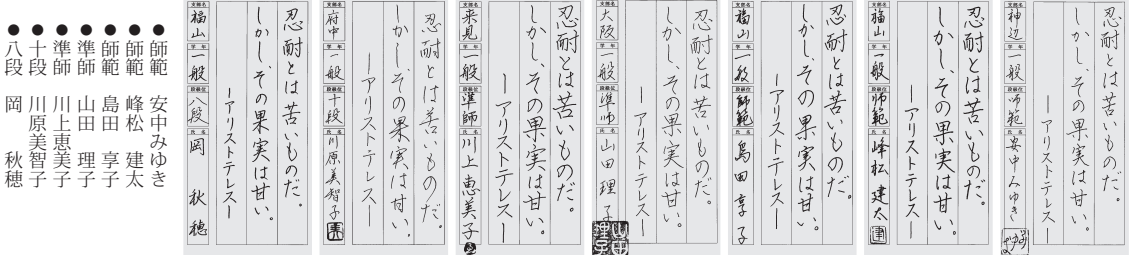 忍耐とは苦いものだ。
しかし、その果実は甘い。
ーアリストテレスー
支部名 神辺 学年 一般 段級位 師範 氏名 安中みゆき
忍耐とは苦いものだ。
しかし、その果実は甘い。
ーアリストテレスー
支部名 福山 学年 一般 段級位 師範 氏名 峰松建太
忍耐とは苦いものだ。
しかし、その果実は甘い。
ーアリストテレスー
支部名 福山 学年 一般 段級位 師範 氏名 島田享子
忍耐とは苦いものだ。
しかし、その果実は甘い。
ーアリストテレスー
支部名 大阪 学年 一般 段級位 準師 氏名 山田理子
忍耐とは苦いものだ。
しかし、その果実は甘い。
ーアリストテレスー
支部名 来見 学年 一般 段級位 準師 氏名 川上恵美子
忍耐とは苦いものだ。
しかし、その果実は甘い。
ーアリストテレスー
支部名 府中 学年 一般 段級位 十段 氏名 川原美智子
忍耐とは苦いものだ。
しかし、その果実は甘い。
ーアリストテレスー
支部名 福山 学年 一般 段級位 八段 氏名 岡秋穂
●師範 安中みゆき
●師範 峰松 建太
●師範 島田 享子
●準師 山田 理子
●準師 川上恵美子
●十段 川原美智子
●八段 岡 秋穂